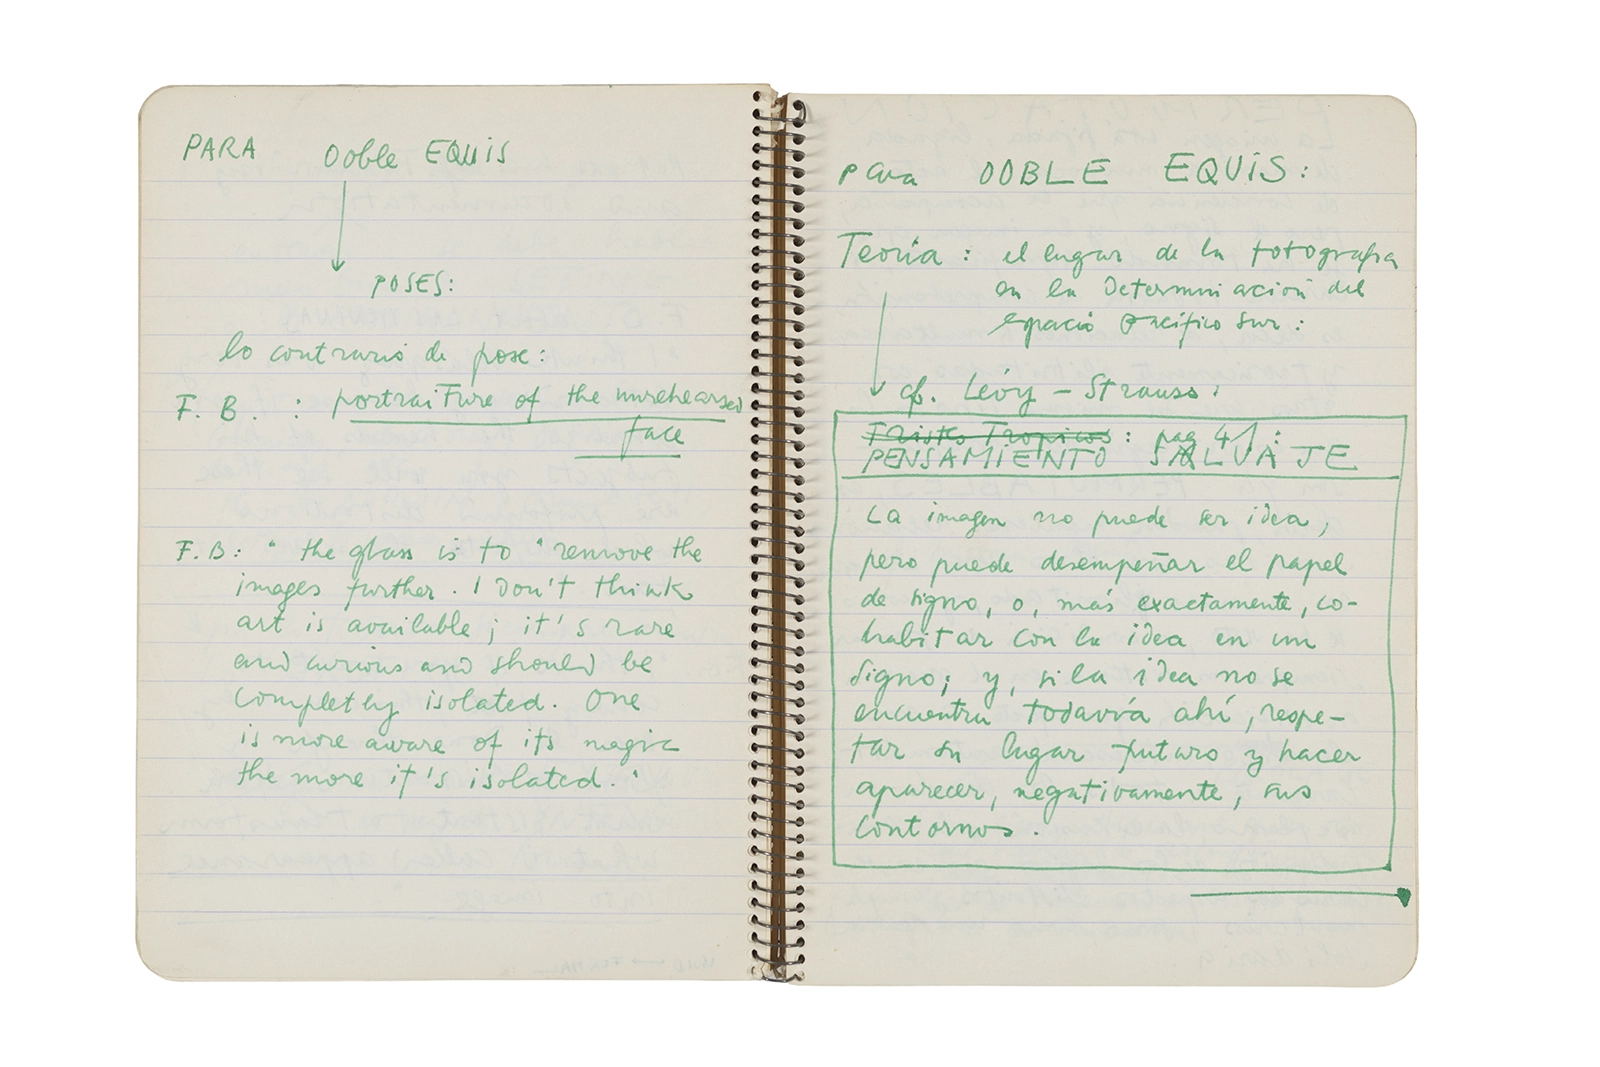 PARA Doble EQUIS
POSES:
lo contrario de pose:
F. B. : portraiture of the unrehearsed
face
F. B: " the glass is to " remove the
images further. I Don't think
art is available; it's rare
and curious and should be
completly isolated. One
is more aware of its magic
the more it's isolated. "
para DOBLE EQUIS:
Teoría : el lugar de la fotografia
en la Determinación del
espacio pacífico sur :
cf. Lévy - Strauss :
Tristes Tropicos : pag 41 :
PENSAMIENTO SALVAJE
La imagen no puede ser idea,
pero puede desempeñar el papel
de signo, o, más exactamente, co-
habitar con la idea en un
signo; y, si la idea no se
encuentra todavía ahí, respe-
tar su lugar futuro y hacer
aparecer, negativamente, sus
contornos.